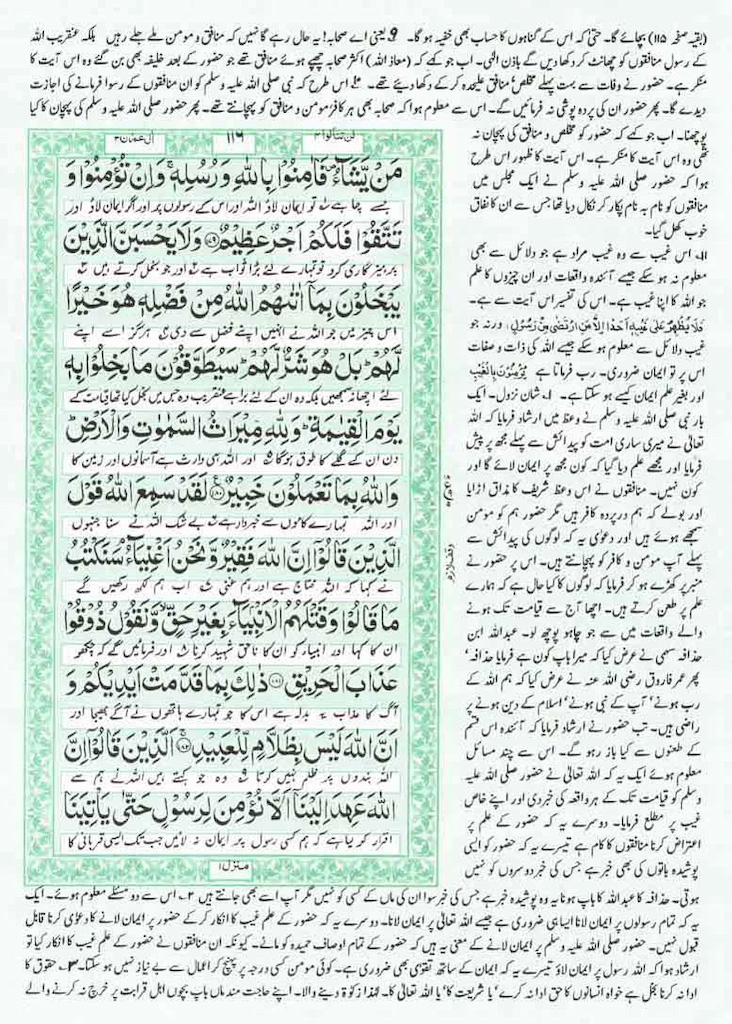 (بقیہ صفحہ ۱۱۵) بچائے گا۔ حتیٰ کہ اس کے گناہوں کا حساب بھی خفیہ ہو گا۔ ۹ یعنی اے صحابہ! یہ حال رہے گا نہیں کہ منافق و مومن ملے جلے رہیں بلکہ عنقریب اللہ
کے رسول منافقوں کو چھانٹ کر رکھا دیں گے باذن الٰہی۔ اب جو کہے کہ (معاذ اللہ) اکثر صحابہ چھپے ہوئے منافق تھے جو حضور کے بعد خلیفہ بھی بن گئے وہ اس آیت کا
منکر ہے۔ حضور نے وفات سے بہت پہلے مخلص، منافق علیحدہ کر کے دکھا دیئے تھے۔ اس طرح کہ نبی صلی اللہ علیہ وسلم کو ان منافقوں کے رسوا فرمانے کی اجازت
دیدے گا۔ پھر حضور ان کی پردہ پوشی نہ فرمائیں گے۔ اس سے معلوم ہوا کہ صحابہ بھی ہر کافر مومن و منافق کو پہچانتے تھے۔ پھر حضور صلی اللہ علیہ وسلم کی پہچان کا کیا
پوچھنا۔ اب جو کہے کہ حضور کو مخلص و منافق کی پہچان نہ
تھی وہ اس آیت کا منکر ہے۔ اس آیت کا ظہور اس طرح
ہوا کہ حضور صلی اللہ علیہ وسلم نے ایک مجلس میں
منافقوں کو نام بہ نام پکار کر نکال دیا تھا جس سے ان کا نفاق
خوب کھل گیا۔
۱۱۔ اس غیب سے وہ غیب مراد ہے جو دلائل سے بھی
معلوم نہ ہو سکے جیسے آئندہ واقعات اور ان چیزوں کا علم
جو اللہ کا اپنا غیب ہے۔ اس کی تفسیر اس آیت سے ہے۔
فَلَا يُظْهِرُ عَلٰى غَيْبِهٖٓ اَحَدًا اِلَّا مَنِ ارْتَضٰى مِنْ رَّسُوْلٍ ورنہ جو
غیب دلائل سے معلوم ہو سکے جیسے اللہ کی ذات و صفات
اس پر تو ایمان ضروری۔ رب فرماتا ہے يُؤْمِنُوْنَ بِالْغَيْبِ
اور بغیر علم ایمان کیسے ہو سکتا ہے۔ ۱۔ شان نزول۔ ایک
بار نبی صلی اللہ علیہ وسلم نے وعظ میں ارشاد فرمایا کہ اللہ
تعالیٰ نے میری ساری امت کو پیدائش سے پہلے مجھ پر پیش
فرمایا اور مجھے علم دیا گیا کہ کون مجھ پر ایمان لائے گا اور
کون نہیں۔ منافقوں نے اس وعظ شریف کا مذاق اڑایا
اور بولے کہ ہم درپردہ کافر ہیں مگر حضور ہم کو مومن
سمجھے ہوئے ہیں اور دعویٰ یہ کہ لوگوں کی پیدائش سے
پہلے آپ مومن و کافر کو پہچانتے ہیں۔ اس پر حضور نے
منبر پر کھڑے ہو کر فرمایا کہ لوگوں کا کیا حال ہے کہ ہمارے
علم پر طعن کرتے ہیں۔ اچھا آج سے قیامت تک ہونے
والے واقعات میں سے جو چاہو پوچھ لو۔ عبداللہ ابن
حذافہ سہمی نے عرض کیا کہ میرا باپ کون ہے فرمایا حذافہ،
پھر عمر فاروق رضی اللہ عنہ نے عرض کیا کہ ہم اللہ کے
رب ہونے، آپ کے نبی ہونے، اسلام کے دین ہونے پر
راضی ہیں۔ تب حضور نے ارشاد فرمایا کہ آئندہ اس قسم
کے طعنوں سے کیا باز رہو گے۔ اس سے چند مسائل
معلوم ہوئے ایک یہ کہ اللہ تعالیٰ نے حضور صلی اللہ علیہ
وسلم کو قیامت تک کے ہر واقعہ کی خبر دی اور اپنے خاص
غیب پر مطلع فرمایا۔ دوسرے یہ کہ حضور کے علم پر
اعتراض کرنا منافقوں کا کام ہے تیسرے یہ کہ حضور کو ایسی
پوشیدہ باتوں کی بھی خبر ہے جس کی خبر دوسروں کو نہیں
لن تنالوا ۴
۱۱۶
اٰل عمرٰن ۳
مَنْ يَّشَآءُ فَاٰمِنُوْا بِاللّٰهِ وَرُسُلِهٖ وَاِنْ تُؤْمِنُوْا وَ
جسے چاہے تو ایمان لاؤ اللہ اور اس کے رسولوں پر اور اگر ایمان لاؤ اور
تَتَّقُوْا فَلَكُمْ اَجْرٌ عَظِيْمٌ ۝۱۷۹ وَلَا يَحْسَبَنَّ الَّذِيْنَ
پرہیزگاری کرو تو تمہارے لئے بڑا ثواب ہے اور جو بخل کرتے ہیں
يَبْخَلُوْنَ بِمَآ اٰتٰىهُمُ اللّٰهُ مِنْ فَضْلِهٖ هُوَ خَيْرًا
اس چیز میں جو اللہ نے انہیں اپنے فضل سے دی ہرگز اسے اپنے
لَّهُمْ ۭ بَلْ هُوَ شَرٌّ لَّهُمْ ۭ سَيُطَوَّقُوْنَ مَا بَخِلُوْا بِهٖ
لئے اچھا نہ سمجھیں بلکہ وہ ان کے لئے برا ہے عنقریب وہ جس میں بخل کیا تھا قیامت کے
يَوْمَ الْقِيٰمَةِ ۭ وَلِلّٰهِ مِيْرَاثُ السَّمٰوٰتِ وَالْاَرْضِ ۭ
دن ان کے گلے کا طوق ہو گا اور اللہ ہی وارث ہے آسمانوں اور زمین کا
وَاللّٰهُ بِمَا تَعْمَلُوْنَ خَبِيْرٌ ۝۱۸۰ لَقَدْ سَمِعَ اللّٰهُ قَوْلَ
اور اللہ تمہارے کاموں سے خبردار ہے بے شک اللہ نے سنا جنہوں
الَّذِيْنَ قَالُوْٓا اِنَّ اللّٰهَ فَقِيْرٌ وَّنَحْنُ اَغْنِيَآءُ ۘ سَنَكْتُبُ
نے کہا کہ اللہ محتاج ہے اور ہم غنی اب ہم لکھ رکھیں گے
مَا قَالُوْا وَقَتْلَهُمُ الْاَنْۢبِيَآءَ بِغَيْرِ حَقٍّ ۙ وَّنَقُوْلُ ذُوْقُوْا
ان کا کہا اور انبیاء کو ان کا ناحق شہید کرنا اور فرمائیں گے کہ چکھو
عَذَابَ الْحَرِيْقِ ۝۱۸۱ ذٰلِكَ بِمَا قَدَّمَتْ اَيْدِيْكُمْ وَ
آگ کا عذاب یہ بدلہ ہے اس کا جو تمہارے ہاتھوں نے آگے بھیجا اور
اَنَّ اللّٰهَ لَيْسَ بِظَلَّامٍ لِّلْعَبِيْدِ ۝۱۸۲ اَلَّذِيْنَ قَالُوْٓا اِنَّ
اللہ بندوں پر ظلم نہیں کرتا وہ جو کہتے ہیں اللہ نے ہم سے
اللّٰهَ عَهِدَ اِلَيْنَآ اَلَّا نُؤْمِنَ لِرَسُوْلٍ حَتّٰى يَاْتِيَنَا
اقرار کر لیا ہے کہ ہم کسی رسول پر ایمان نہ لائیں جب تک ایسی قربانی کا
منزل ۱
وقف لازم
ہوتی۔ حذافہ کا عبداللہ کا باپ ہونا یہ وہ پوشیدہ خبر ہے جس کی خبر سوا ان کی ماں کے کسی کو نہیں مگر آپ اسے بھی جانتے ہیں ۲۔ اس سے دو مسئلے معلوم ہوئے۔ ایک
یہ کہ تمام رسولوں پر ایمان لانا ایسا ہی ضروری ہے جیسے اللہ تعالیٰ پر ایمان لانا۔ دوسرے یہ کہ حضور کے علم غیب کا انکار کر کے حضور پر ایمان لانے کا دعوٰی کرنا قابل
قبول نہیں۔ حضور صلی اللہ علیہ وسلم پر ایمان لانے کے معنی یہ ہیں کہ حضور کے تمام اوصاف حمیدہ کو مانے۔ کیونکہ ان منافقوں نے حضور کے علم غیب کا انکار کیا تو
ارشاد ہوا کہ اللہ رسول پر ایمان لاؤ تیسرے یہ کہ ایمان کے ساتھ تقویٰ بھی ضروری ہے۔ کوئی مومن کسی درجہ پر پہنچ کر اعمال سے بے نیاز نہیں ہو سکتا۔ ۳۔ حقوق کا
ادا نہ کرنا بخل ہے خواہ انسانوں کا حق ادا نہ کرے، یا شریعت کا، یا اللہ تعالیٰ کا۔ لہٰذا زکوٰۃ دینے والا۔ اپنے حاجت مند ماں باپ بچوں اہل قرابت پر خرچ نہ کرنے والے